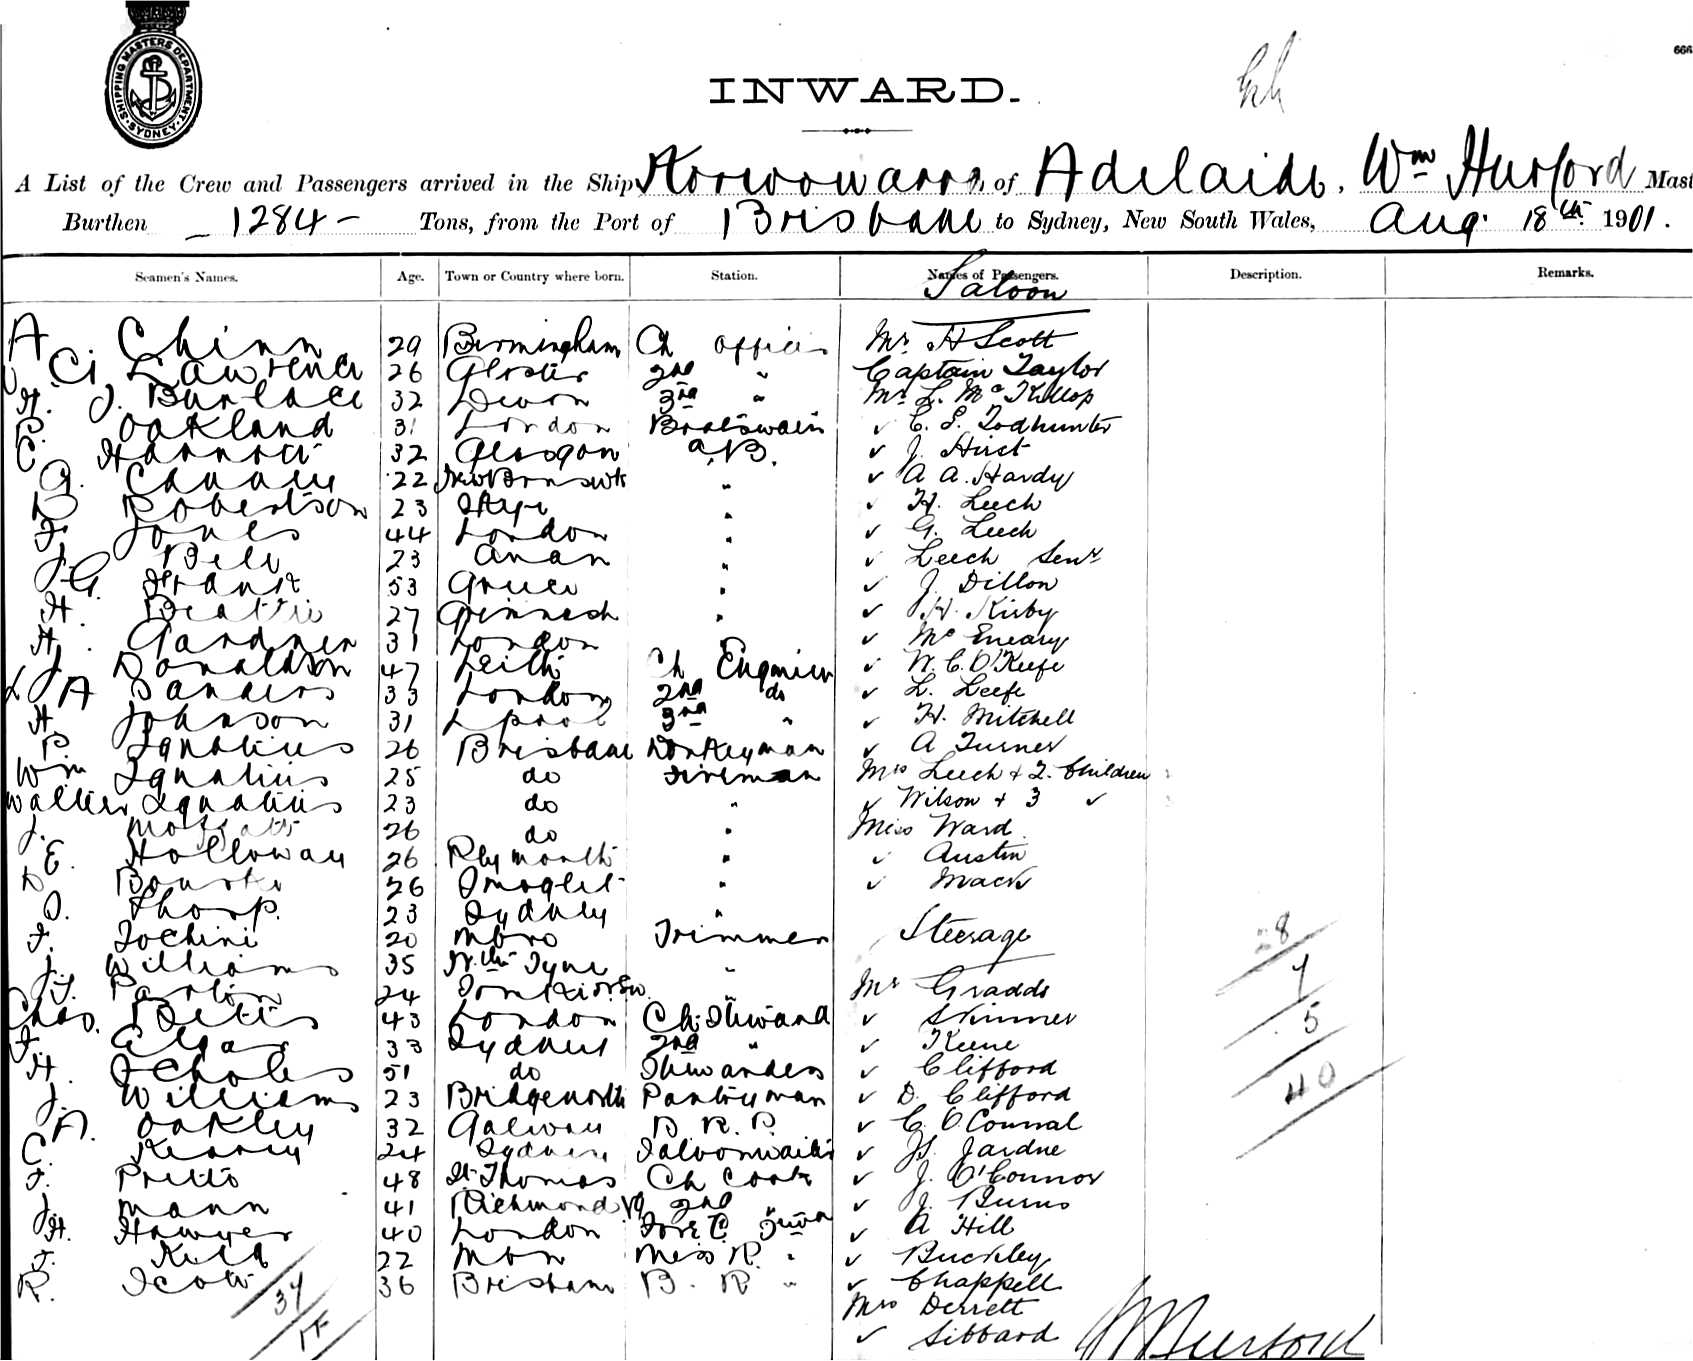 SHIPPING MASTERS DEPARTMENT
SYDNEY
666
INWARD.
A List of the Crew and Passengers arrived in the Ship of Adelaide, Wm Hurford Mast
Burthen 1284 - Tons, from the Port of Brisbane to Sydney, New South Wales, Aug 18th 1901.
Seamen's Names. Age. Town or Country where born. Station. Names of Passengers. Description. Remarks.
Saloon
A Chinn 29 Birmingham Ch Officer Mr H Scott
C. Lawrence 26 Gloster 2nd " Captain Taylor
H. J. Burlace 32 Devon 3rd " Mr L. McKillop
P. Oakland 31 London Boatswain ✓ C. E. Todhunter
C. 32 Glasgow A.B. ✓ J. Hirst
G. 22 New Brnswk " ✓ A A. Hardy
D Robertson 23 Skye " ✓ H. Leech
F. Jones 44 London " ✓ G. Leech
J. Bell 23 Anan " ✓ Leech Senr
J. G. 53 Greece " ✓ J. Dillon
H. Beattie 27 " ✓ H. Kirby
H. Gardner 31 London " ✓ McEneary
J. Donaldson 47 Leith Ch Engineer ✓ W. C. O'Keefe
L J A Sanders 33 London 2nd do ✓ L. Leefe
H. Johnson 31 Lpool 3rd " ✓ H. Mitchell
P Ignatius 26 Brisbane Donkeyman ✓ A Turner
Wm Ignatius 25 do Fireman Mrs Leech & 2. Children
Walter Ignatius 23 do " ✓ Wilson & 3 ✓
J. Moffatt 26 do " Miss Ward
E. Holloway 26 Plymouth " ✓ Austin
D Bourke 26 " ✓ Mack
J. Thorp. 23 Sydney "
F. Jochini 20 Mbro Trimmer Steerage 28
J. Williams 35 Nth Tyne " 7
J. J. Parton 24 " Mr Gradds
Chas. Betts 43 London Ch. Steward ✓ Skinner 5
F. Elgar 33 Sydney 2nd " ✓ Keene
H. Scholes 51 do Stewardess ✓ Clifford 40
J. Williams 23 Bridgenorth Pantryman ✓ D. Clifford
A. Oakley 32 Galway B. R. P. ✓ C. O'Connal
C. Kearey 24 Sydney Saloonwaiter ✓ Js. Jardne
F. Pritto 48 St Thomas Ch Cook ✓ J. O'Connor
J. Mann 41 Richmond Va 2nd " ✓ J. Burns
H. Hawyer 40 London Fore C. ✓ A Hill
J. Kidd 22 Mbn Mess R. " ✓ Buckley
R. Scott 36 Brisbane B. R " ✓ Chappell
37 Mrs Derrett
✓ Sibbard WmHurford